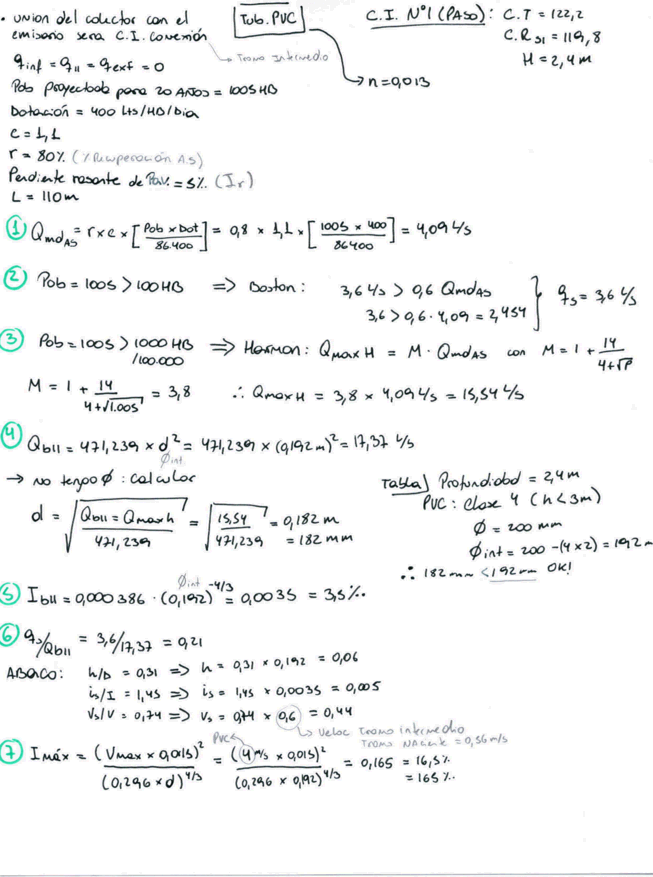 • Union del colector con el
emisario sera C.I. conexión
Tub. PVC
C.I. Nº1 (PASO): C.T = 122,2
C.R S1 = 119,8
H = 2,4 m
qinf = q11 = qext = 0
Tramo Intermedio
n=0,013
Pob proyectada para 20 AÑOS = 1005 HB
Dotación = 400 Lts/HB/Dia
C = 1,1
r = 80% (% Recuperación A.S)
Pendiente rasante de Pav. = 5%. (Ir)
L = 110 m
① QmdAS = r x c x [Pob x Dot / 86.400] = 0,8 x 1,1 x [1005 x 400 / 86400] = 4,09 l/s
② Pob = 1005 > 100 HB => Boston: 3,6 l/s > 0,6 QmdAS
3,6 > 0,6 · 4,09 = 2,454 } qs = 3,6 l/s
③ Pob = 1005 > 1000 HB => Harmon: QmaxH = M · QmdAS con M = 1 + 14/(4+√P)
/100.000
M = 1 + 14/(4+√1.005) = 3,8 ∴ QmaxH = 3,8 x 4,09 l/s = 15,54 l/s
④ Qbll = 471,239 x d² = 471,239 x (0,192 m)² = 17,37 l/s
Øint
→ No tengo Ø : calcular
d = √(Qbll = Qmaxh / 471,239) = √(15,54 / 471,239) = 0,182 m
= 182 mm
Tabla) Profundidad = 2,4 m
PVC : Clase 4 (h<3m)
Ø = 200 mm
Øint = 200 - (4x2) = 192 m
∴ 182 mm < 192 mm OK!
⑤ Ibll = 0,000386 · (0,192)^-4/3 = 0,0035 = 3,5%.
Øint
⑥ qs/Qbll = 3,6/17,37 = 0,21
ABACO: h/D = 0,31 => h = 0,31 x 0,192 = 0,06
is/I = 1,45 => is = 1,45 x 0,0035 = 0,005
Vs/V = 0,74 => Vs = 0,74 x 0,6 = 0,44
Veloc Tramo intermedio
Tramo Nacente = 0,56 m/s
PVC
⑦ Imáx = (Vmax x 0,015)² / (0,296 x d)^4/3 = (4 m/s x 0,015)² / (0,296 x 0,192)^4/3 = 0,165 = 16,5%
= 165%.